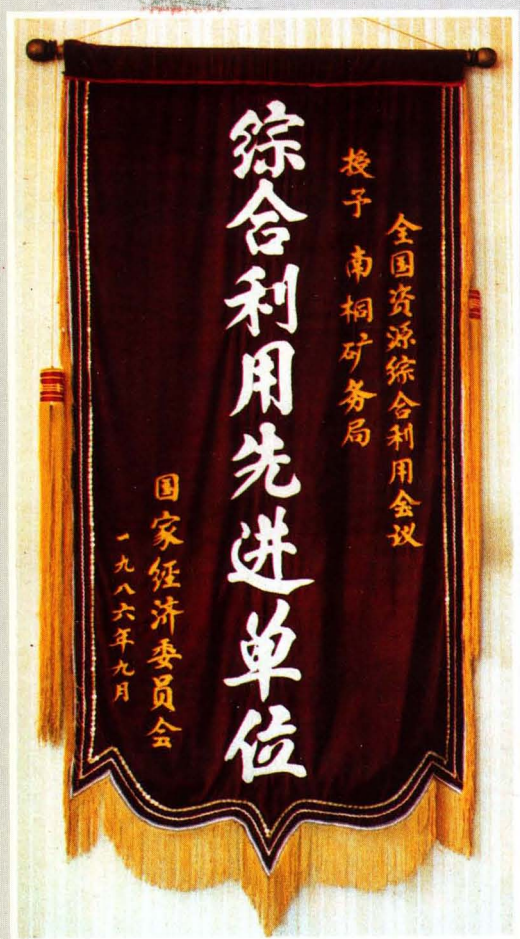 全国资源综合利用会议
授予 南桐矿务局
综合利用先进单位
国家经济委员会
一九八六年九月